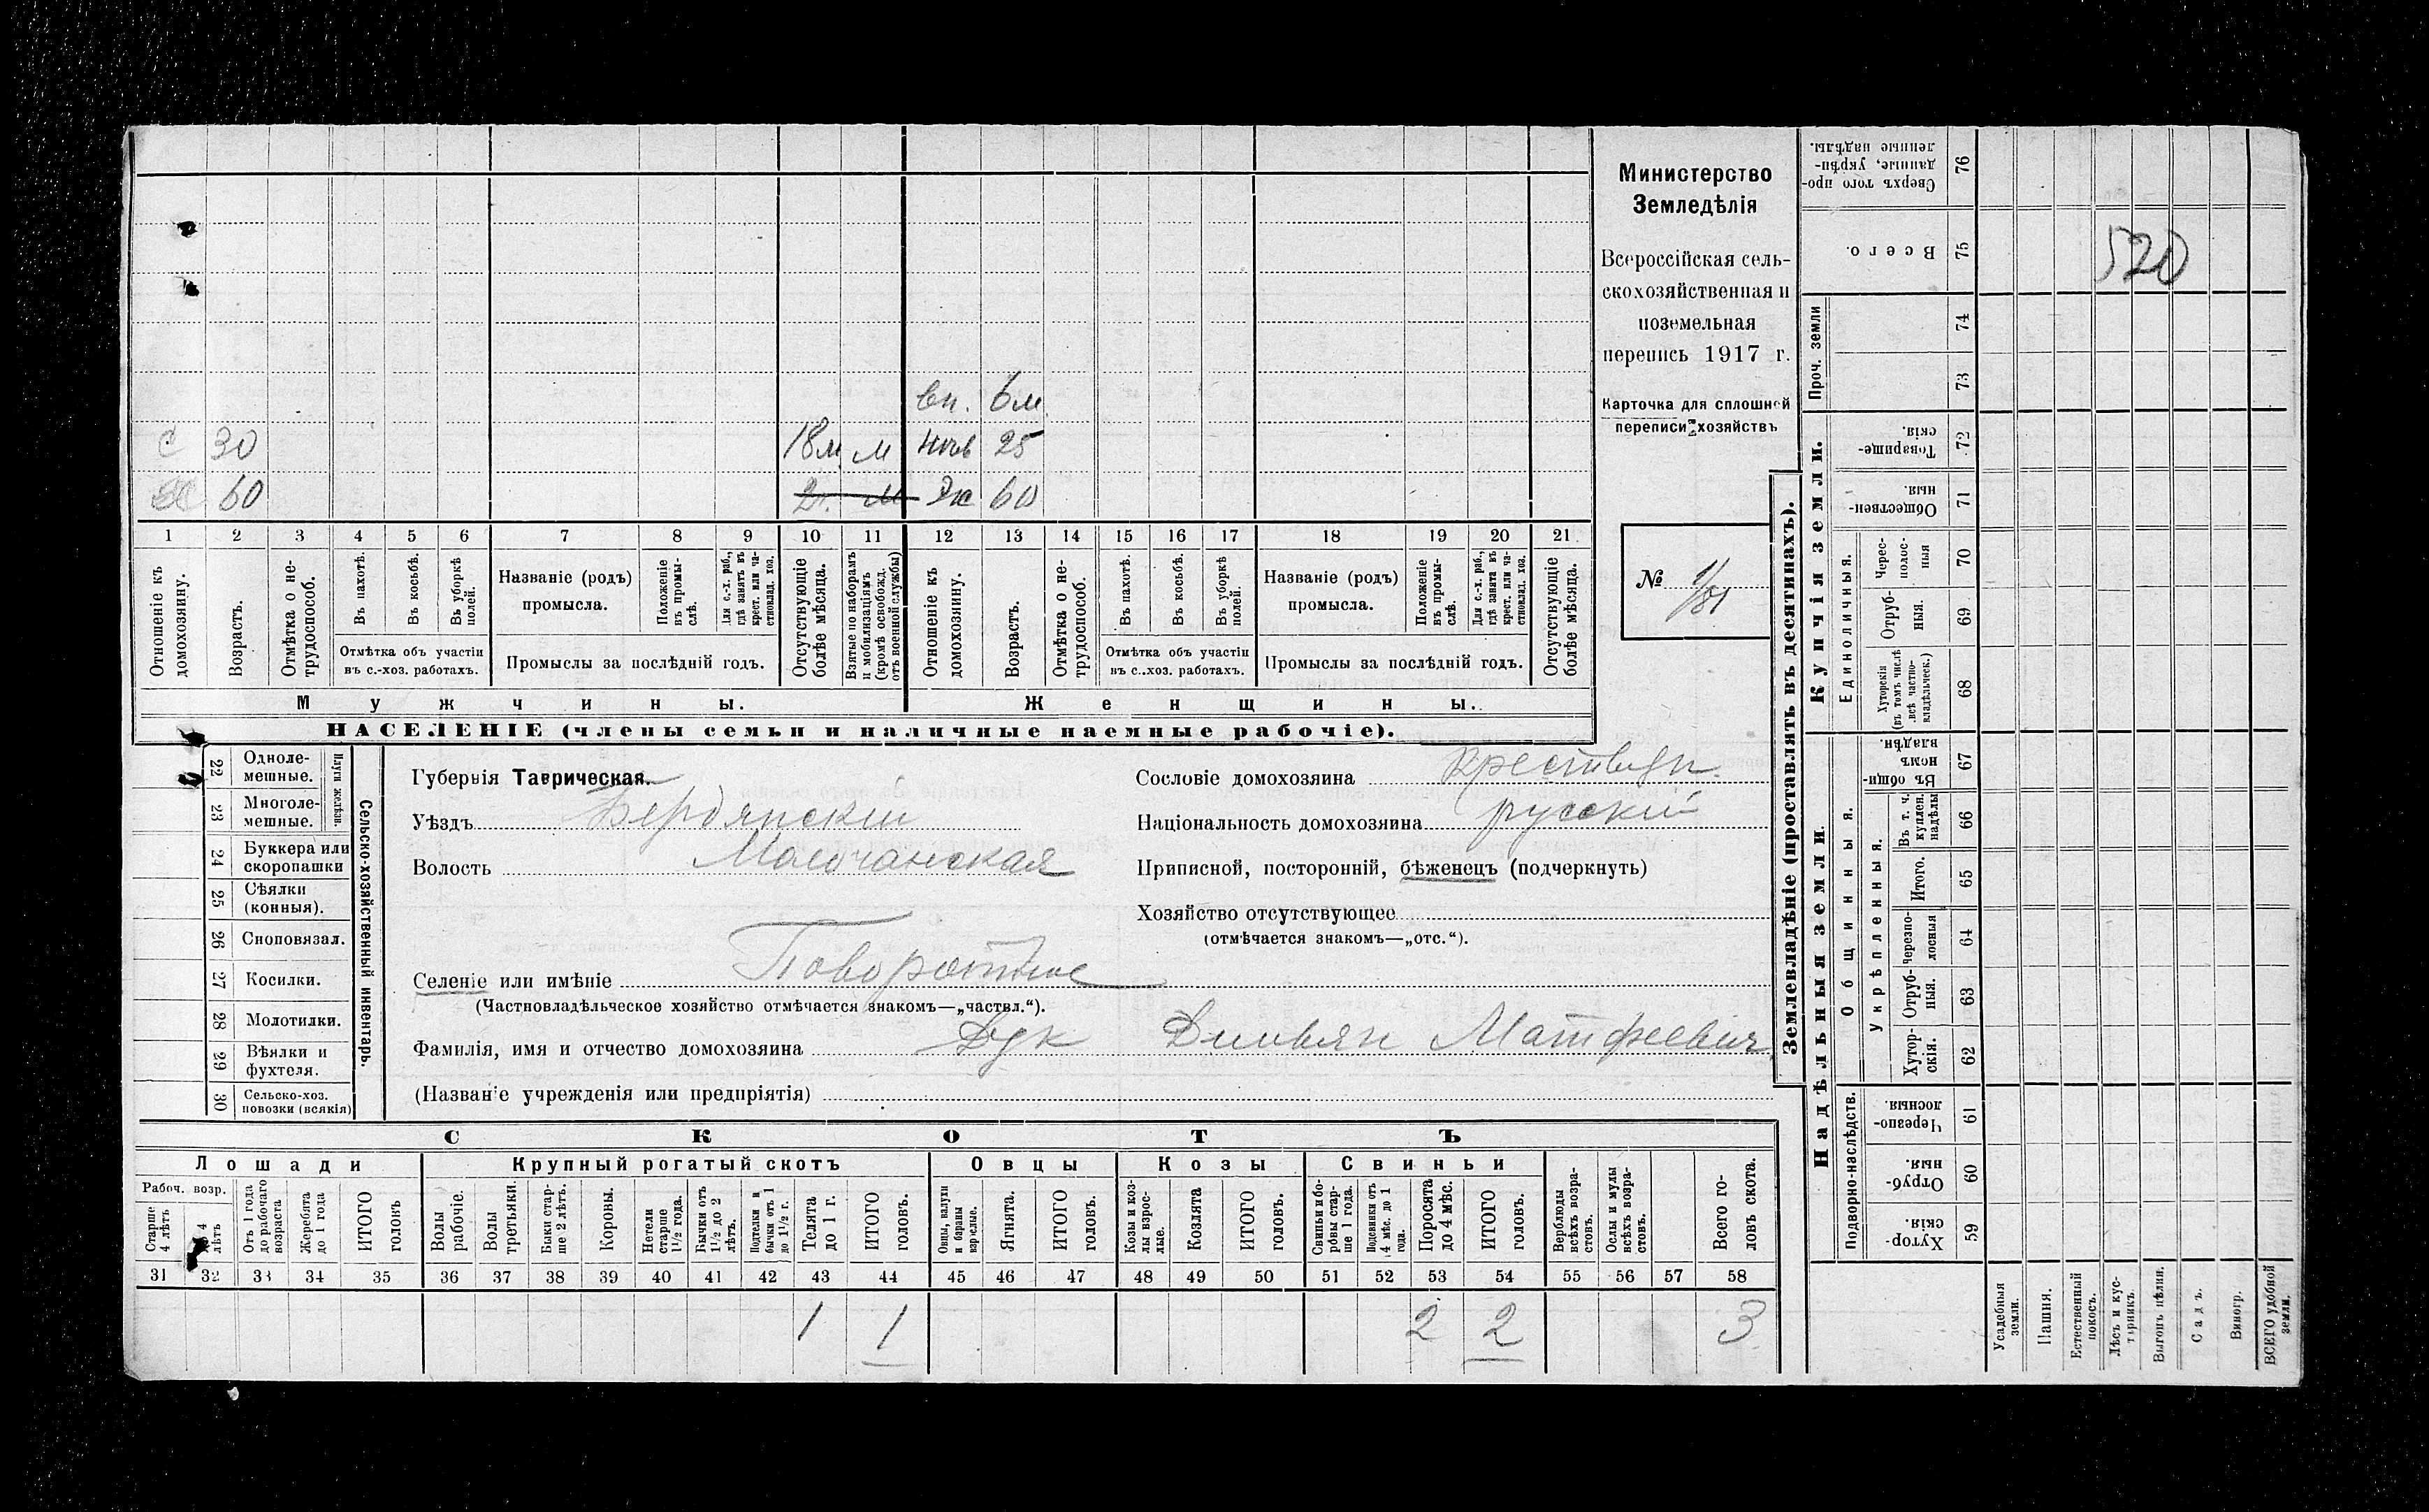 вн. 6 м
С 30 18 м м нев 25
60 2 г. м Ж 60
1 2 3 4 5 6 7 8 9 10 11 12 13 14 15 16 17 18 19 20 21
Отношеніе къ домохозяину.
Возрастъ.
Отмѣтка о не-
трудоспособ.
Въ пахотѣ.
Въ косьбѣ.
Въ уборкѣ
полей.
Отмѣтка объ участіи
въ с.-хоз. работахъ.
Названіе (родъ)
промысла.
Положеніе
въ промы-
слѣ.
Для с.-х. раб.,
гдѣ занятъ въ
крест. или ча-
стновлад. хоз.
Промыслы за послѣдній годъ.
Отсутствующіе
болѣе мѣсяца.
Взятые по наборамъ
и мобилизаціямъ
(кромѣ освобожд.
отъ военной службы)
Отношеніе къ
домохозяину.
Возрастъ.
Отмѣтка о не-
трудоспособ.
Въ пахотѣ.
Въ косьбѣ.
Въ уборкѣ
полей.
Отмѣтка объ участіи
въ с.-хоз. работахъ.
Названіе (родъ)
промысла.
Положеніе
въ промы-
слѣ.
Для с.-х. раб.,
гдѣ занята въ
крест. или ча-
стновлад. хоз.
Промыслы за послѣдній годъ.
Отсутствующіе
болѣе мѣсяца.
Мужчины.
Женщины.
НАСЕЛЕНІЕ (члены семьи и наличные наемные рабочіе).
Министерство
Земледѣлія
Всероссійская сель-
скохозяйственная и
поземельная
перепись 1917 г.
Карточка для сплошной
переписи хозяйствъ
№ 1/81
22 Одноле-
мешные.
23 Многоле-
мешные.
Плуги желѣзн.
24 Буккера или
скоропашки
25 Сѣялки
(конныя).
26 Сноповязал.
27 Косилки.
28 Молотилки.
29 Вѣялки и
фухтеля.
30 Сельско-хоз.
повозки (всякія)
Сельско-хозяйственный инвентарь.
Губернія Таврическая.
Уѣздъ Бердянскій
Волость Молочанская
Селеніе или имѣніе
(Частновладѣльческое хозяйство отмѣчается знакомъ—„частвл.“).
Фамилія, имя и отчество домохозяина Дук Демьян Матфеевич
(Названіе учрежденія или предпріятія)
Сословіе домохозяина
Національность домохозяина русскій
Приписной, посторонній, бѣженецъ (подчеркнуть)
Хозяйство отсутствующее
(отмѣчается знакомъ—„отс.“).
СКОТЪ
Лошади
Рабоч. возр.
Старше
4 лѣтъ
До 4
лѣтъ
Отъ 1 года
до рабочаго
возраста
Жеребята
до 1 года
ИТОГО
головъ
Крупный рогатый скотъ
Волы
рабочіе.
Волы
третьяки.
Быки стар-
ше 2 лѣтъ.
Коровы.
Нетели
старше
1½ года.
Бычки отъ
1½ до 2
лѣтъ.
Подтелки и
бычки отъ 1
до 1½ г.
Телята
до 1 г.
ИТОГО
головъ.
Овцы
Овцы, валухи
и бараны
взрослые.
Ягнята.
ИТОГО
головъ.
Козы
Козы и коз-
лы взрос-
лые.
Козлята
ИТОГО
головъ.
Свиньи
Свиньи и бо-
ровы стар-
ше 1 года.
Подсвинки отъ
4 мѣс. до 1
года.
Поросята
до 4 мѣс.
ИТОГО
головъ.
Верблюды
всѣхъ возра-
стовъ.
Ослы и мулы
всѣхъ возра-
стовъ.
Всего го-
ловъ скота.
31 32 33 34 35 36 37 38 39 40 41 42 43 44 45 46 47 48 49 50 51 52 53 54 55 56 57 58
1 1 2 2 3
Землевладѣніе (проставлять въ десятинахъ).
Купчія земли.
Надѣльныя земли.
Сверхъ того про-
данные, укрѣп-
ленные надѣлы.
76
Всего.
75
520
Проч. земли
74
73
Товарище-
скія.
72
Обществен-
ныя.
71
Единоличныя.
Черес-
полос-
ныя
70
Отруб-
ныя.
69
Хуторскія
(въ томъ числѣ
всѣ частно-
владѣльческ.)
68
Общинныя.
Въ общи-
номъ
владѣн.
67
Укрѣпленныя.
Въ т. ч.
куплен.
надѣлы
66
Итого.
65
Черезпо-
лосныя
64
Отруб-
ныя.
63
Хутор-
скія.
62
Подворно-наслѣдств.
Черезпо-
лосныя.
61
Отруб-
ныя.
60
Хутор-
скія.
59
Усадебныя
земли.
Пашня.
Естественный
покосъ.
Лѣсъ и кус-
тарникъ.
Выгонъ цѣлин.
Садъ.
Виногр.
ВСЕГО удобной
земли.